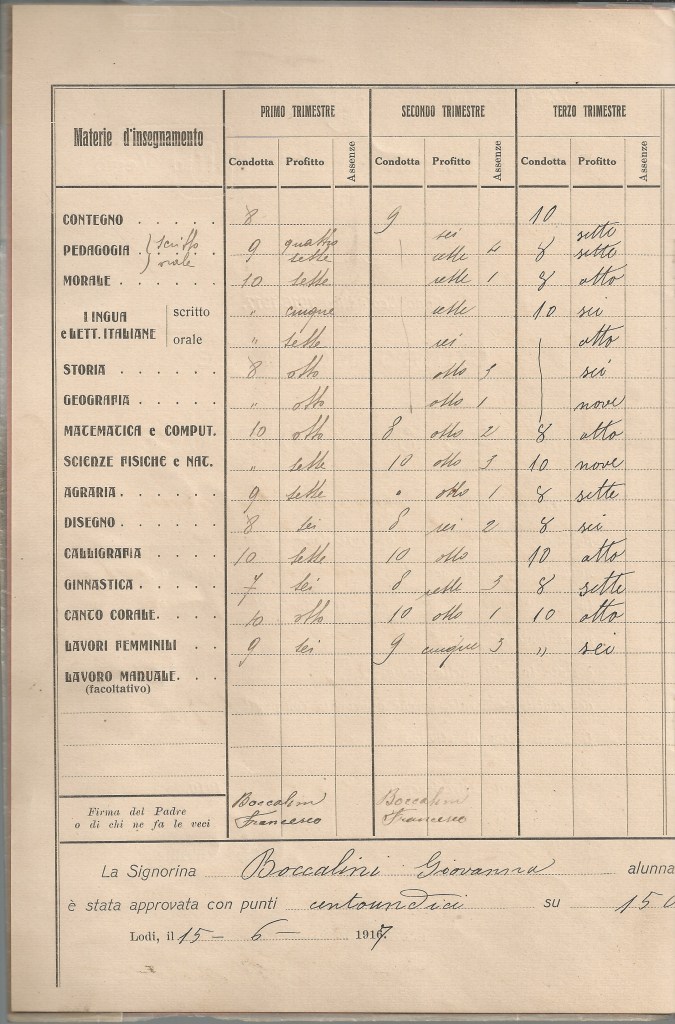 PRIMO TRIMESTRE SECONDO TRIMESTRE TERZO TRIMESTRE
Materie d'insegnamento
Condotta Profitto Assenze Condotta Profitto Assenze Condotta Profitto Assenze
CONTEGNO . . . . . 8 9 10
sei sette
PEDAGOGIA . scritto 9 quattro 8
orale sette sette 4 sette
MORALE . . . . . . 10 sette sette 1 8 otto
LINGUA e LETT. ITALIANE scritto " cinque sette 10 sei
orale " sette sei otto
STORIA . . . . . . 8 otto otto 3 sei
GEOGRAFIA . . . . . " otto otto 1 nove
MATEMATICA e COMPUT. 10 otto 8 otto 2 8 otto
SCIENZE FISICHE e NAT. " sette 10 otto 3 10 nove
AGRARIA . . . . . . 9 sette otto 1 8 sette
DISEGNO . . . . . . 8 sei 8 sei 2 8 sei
CALLIGRAFIA . . . . 10 sette 10 otto 10 otto
GINNASTICA . . . . . 7 sei 8 sette 3 8 sette
CANTO CORALE. . . . 10 otto 10 otto 1 10 otto
LAVORI FEMMINILI . . 9 sei 9 cinque 3 " sei
LAVORO MANUALE. . .
(facoltativo)
Firma del Padre Boccalini Boccalini
o di chi ne fa le veci Francesco Francesco
La Signorina Boccalini Giovanna alunna
è stata approvata con punti centoundici su 150
Lodi, il 15 - 6 - 1917